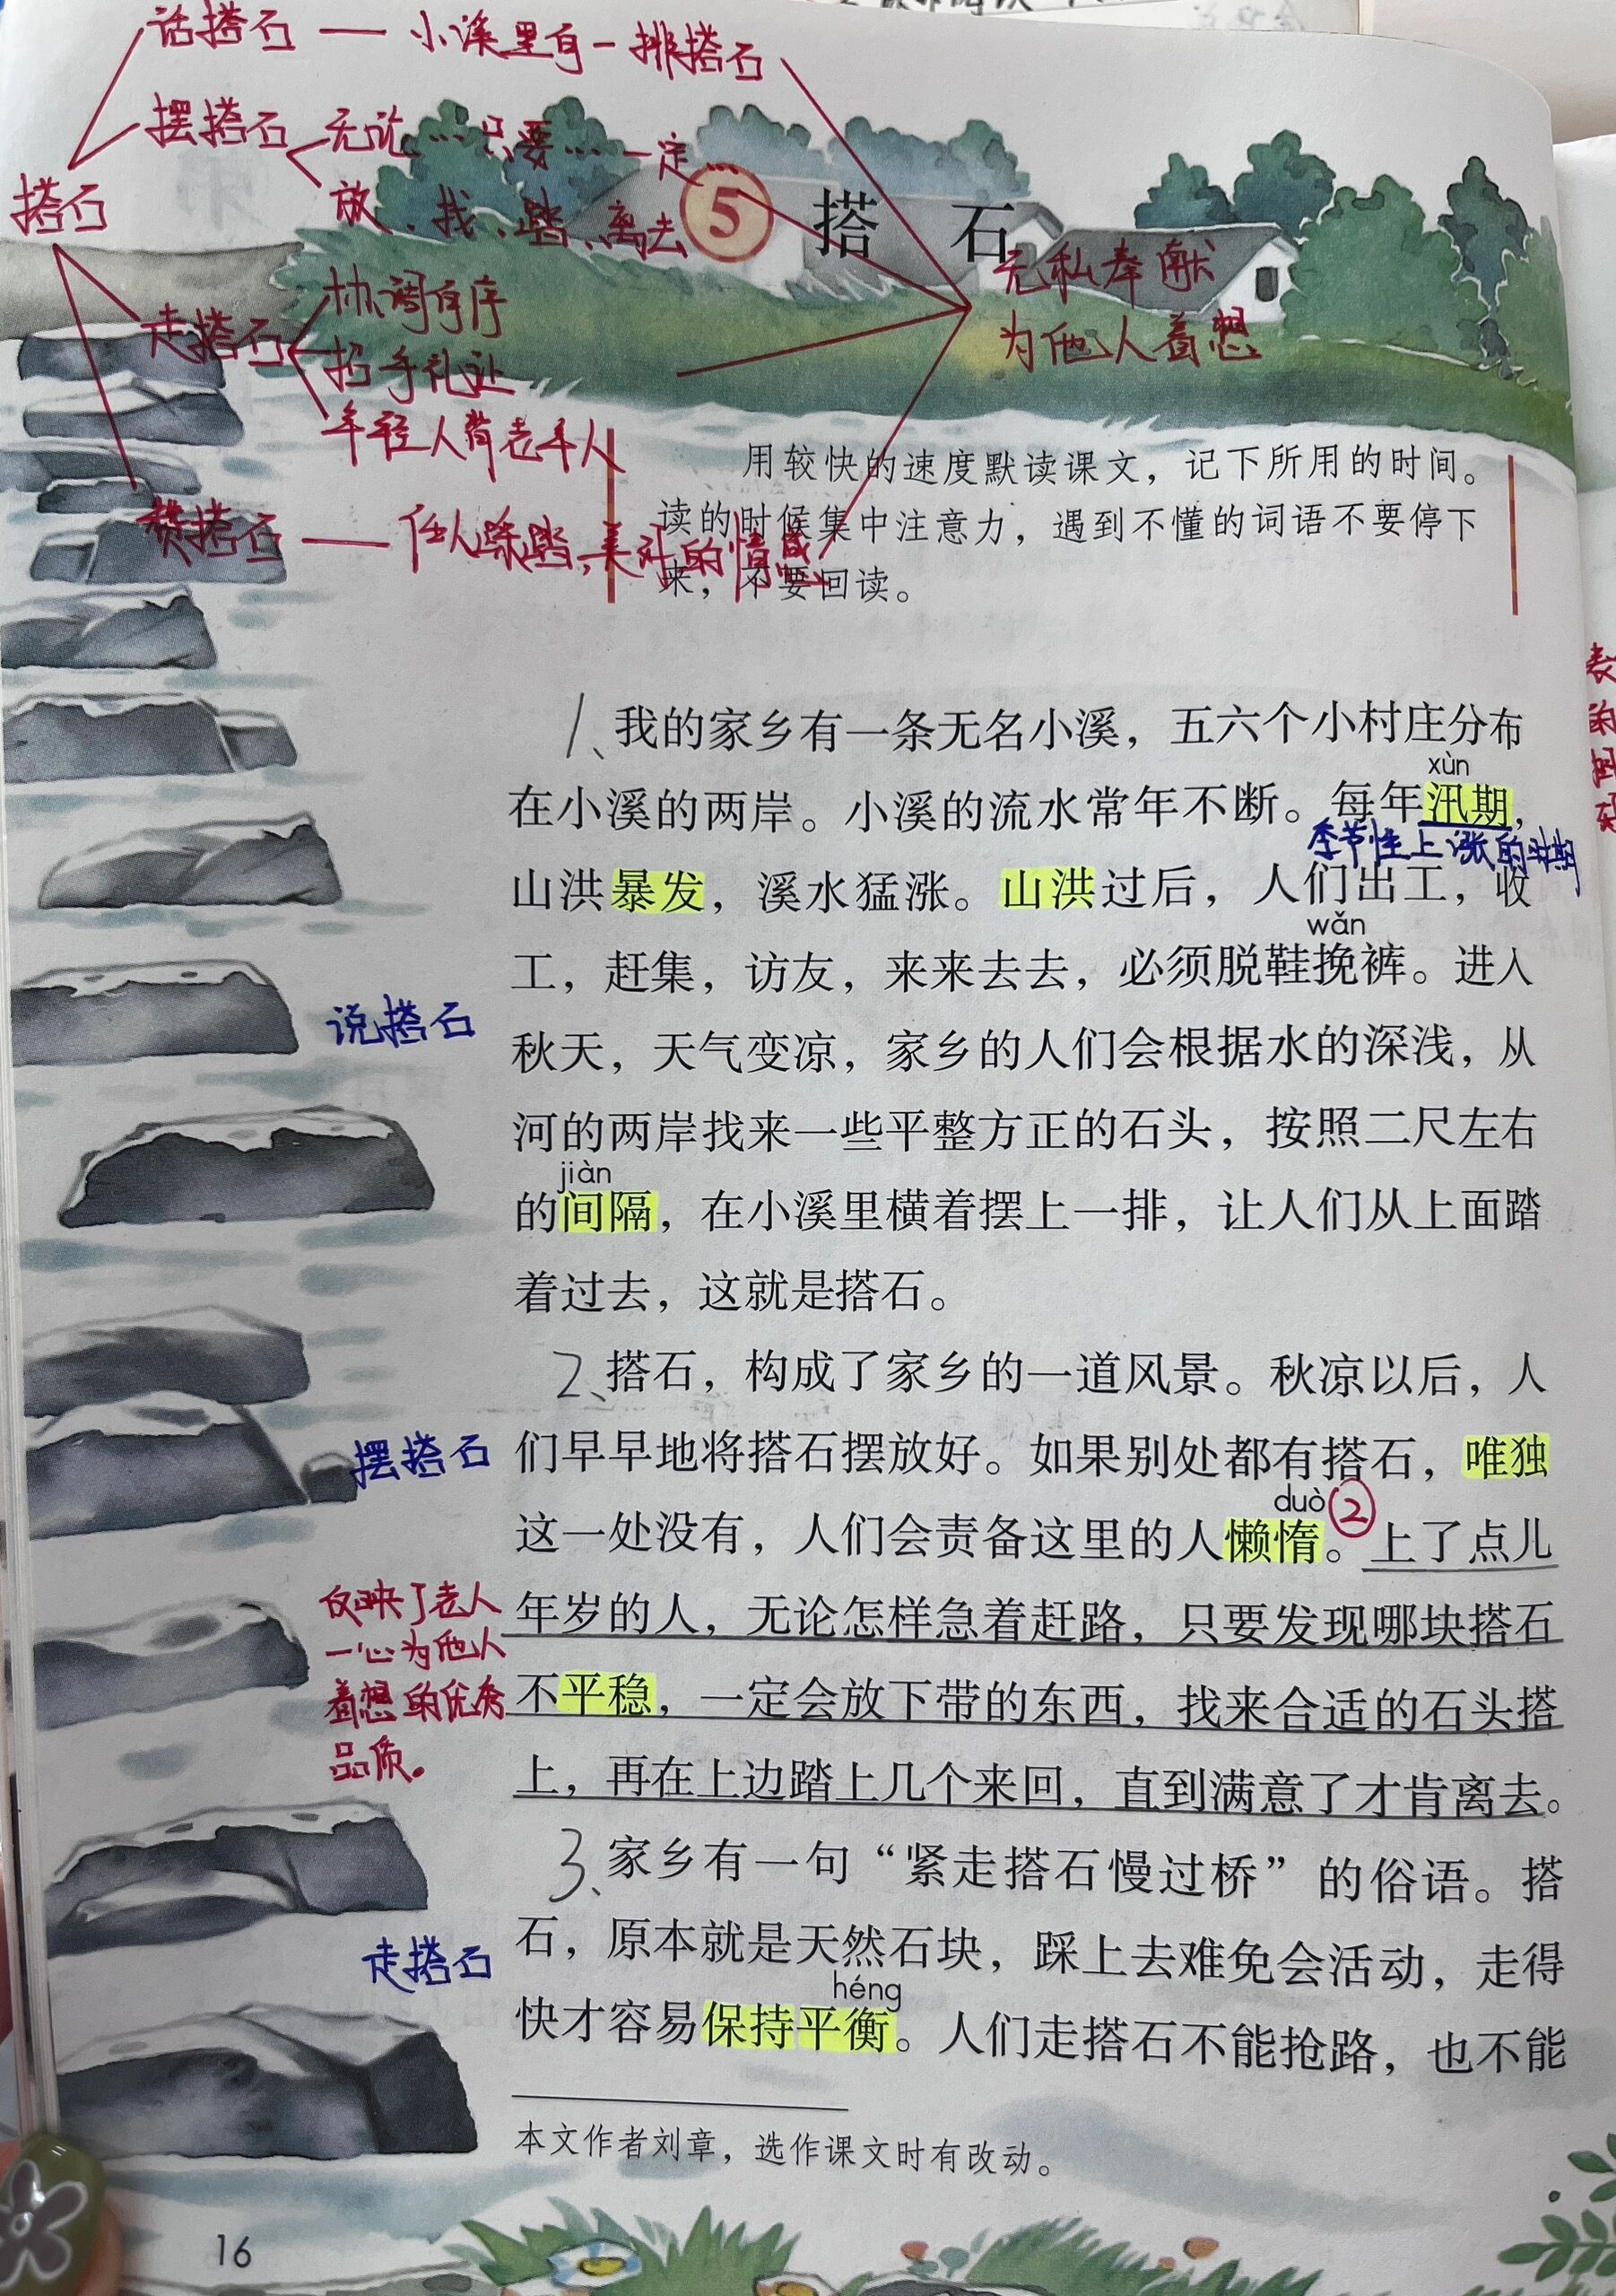 话搭石 — 小溪里有一排搭石
摆搭石
无论…只要…一定…
放、找、踏、离去
搭石
5 搭石
无私奉献
为他人着想
走搭石
协调有序
招手礼让
年轻人背老年人
赞搭石 — 任人踩踏,美好的情感
用较快的速度默读课文，记下所用的时间。
读的时候集中注意力，遇到不懂的词语不要停下
来，不要回读。
1、我的家乡有一条无名小溪，五六个小村庄分布
xùn
在小溪的两岸。小溪的流水常年不断。每年汛期，
季节性上涨的时期
山洪暴发，溪水猛涨。山洪过后，人们出工，收
wǎn
工，赶集，访友，来来去去，必须脱鞋挽裤。进入
说搭石
秋天，天气变凉，家乡的人们会根据水的深浅，从
河的两岸找来一些平整方正的石头，按照二尺左右
jiàn
的间隔，在小溪里横着摆上一排，让人们从上面踏
着过去，这就是搭石。
2、搭石，构成了家乡的一道风景。秋凉以后，人
摆搭石
们早早地将搭石摆放好。如果别处都有搭石，唯独
duò ②
这一处没有，人们会责备这里的人懒惰。上了点儿
年岁的人，无论怎样急着赶路，只要发现哪块搭石
不平稳，一定会放下带的东西，找来合适的石头搭
上，再在上边踏上几个来回，直到满意了才肯离去。
反映了老人
一心为他人
着想的优秀
品质。
3、家乡有一句“紧走搭石慢过桥”的俗语。搭
走搭石
石，原本就是天然石块，踩上去难免会活动，走得
héng
快才容易保持平衡。人们走搭石不能抢路，也不能
本文作者刘章，选作课文时有改动。
16